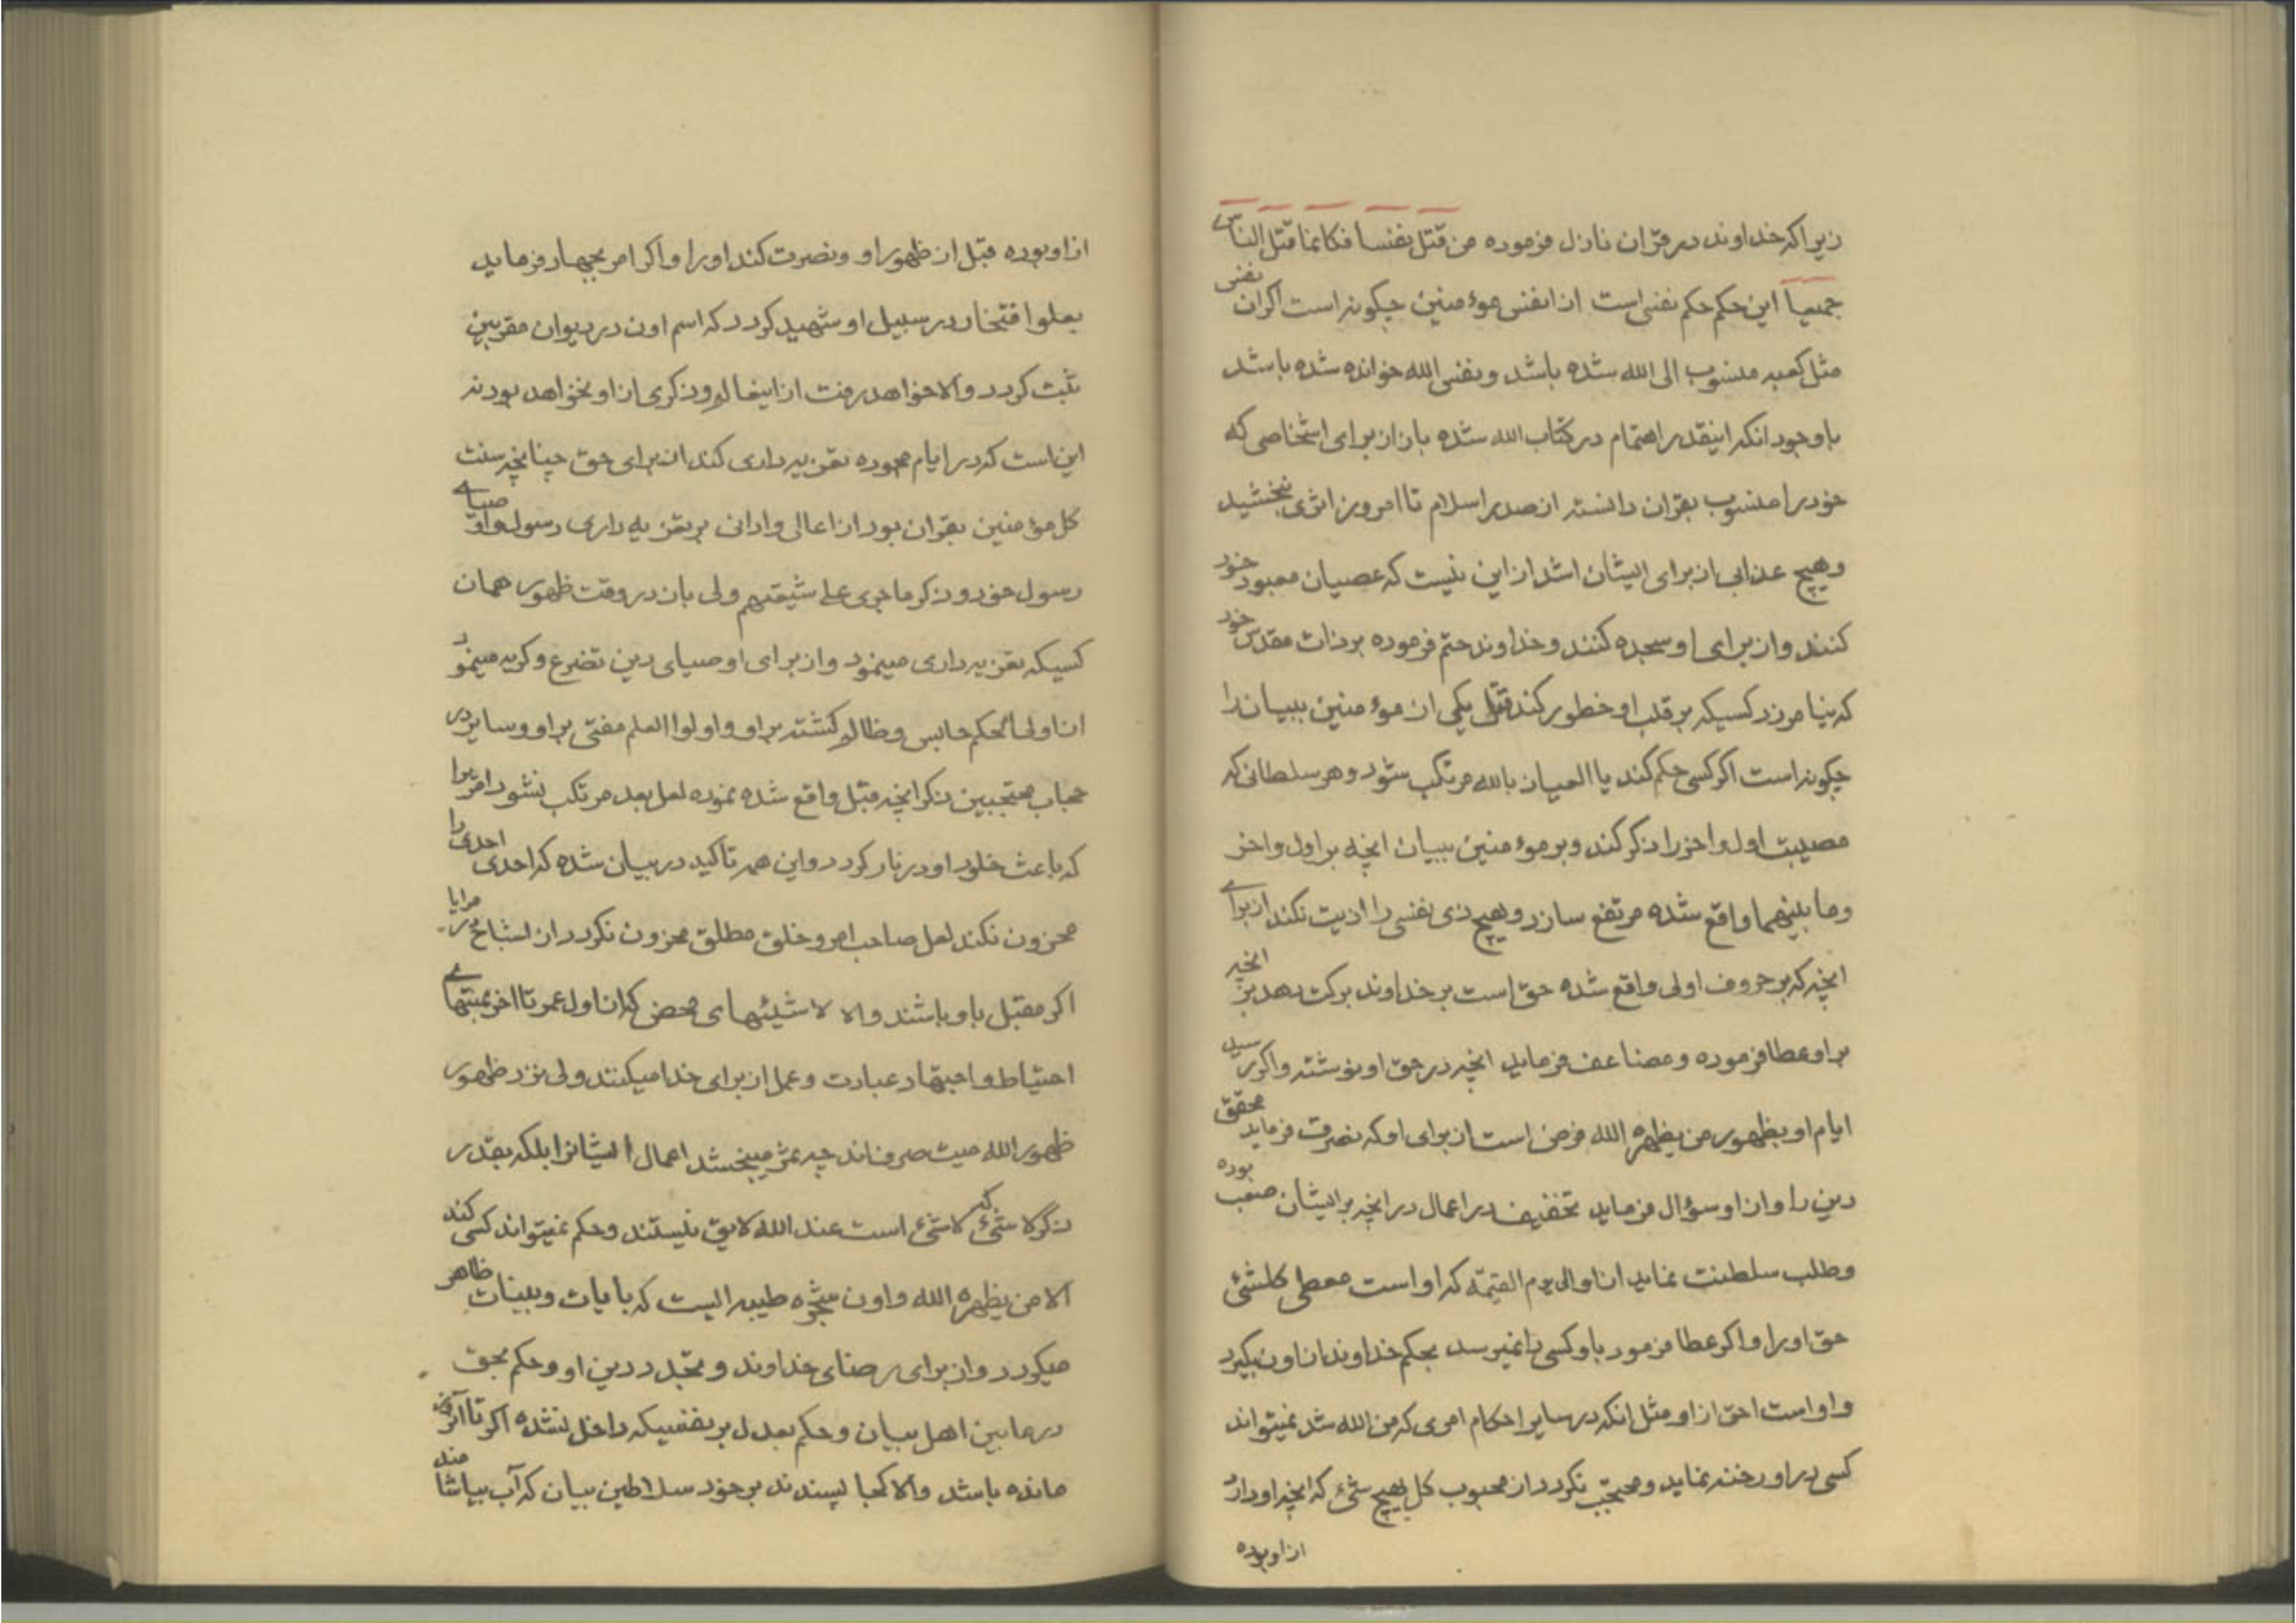 زیرا که خداوند در قرآن نازل فرموده من قتل نفسا فکانما قتل الناس
جمیعا این حکم حکم نفسی است از انفس مؤمنین چگونه است اگر ان نفس
مثل کعبه منسوب الی الله شده باشد و نفس الله خوانده شده باشد
باوجود انکه اینقدر اهتمام در کتاب الله شده باز از برای اشخاصی که
خود را منسوب بقران دانسته از صدر اسلام تا امروز اثری نبخشید
و هیچ عذابی از برای ایشان اشد از این نیست که عصیان معبود خود
کنند و از برای او سجده کنند و خداوند حتم فرموده بر ذات مقدس خود
که نیامرزد کسیکه بر قلب او خطور کند قتل یکی از مؤمنین ببیان را
چگونه است اگر کسی حکم کند یا العیاذ بالله مرتکب شود و هر سلطانی که
مصیبت اول و اخر را ذکر کند و بر مؤمنین ببیان انچه بر اول و اخر
و ما بینهما واقع شده مرتفع سازد و هیچ ذی نفسی را اذیت نکند از برای
انچه که بر حروف اولی واقع شده حق است بر خداوند برکت دهد بر انچه
براو عطا فرموده و مضاعف فرماید انچه در حق او نوشته و اگر رسید
ایام او بظهور من یظهره الله فرض است از برای او که نصرت فرماید محقق
دین را و از او سؤال فرماید تخفیف در اعمال در انچه بر ایشان صعب بوده
و طلب سلطنت نماید از او الی یوم القیمة که او است معطی کلشئ
حق او را و اگر عطا فرمود باو کسی را نمیرسد بحکم خداوند از او ن بگیرد
و او است احق از او مثل انکه در سایر احکام امری که من الله شد نمیتواند
کسی در او رخنه نماید و محتجب نگردد از محبوب کل بهیچ شئ که انچه او دارد
از او بوده
از او بوده قبل از ظهور او و نصرت کند او را و اگر امر بجهاد فرماید
بعلو افتخار در سبیل او شهید گردد که اسم اون در دیوان مقربین
ثبت گردد والا خواهد رفت از اینعالم و ذکری از او نخواهد بود نه
این است که در ایام محموده تعزیه داری کند از برای حق چنانچه سنت
کل مؤمنین بقران بود از اعالی و ادانی بر تعزیه داری رسول و اوصیای
رسول خود و ذکر ما جری علی شیعتهم ولی بان در وقت ظهور همان
کسیکه تعزیه داری مینمود و از برای اوصیای دین تضرع و گریه مینمود
ان اولی الحکم حابس و ظالم گشته براو و اولوا العلم مفتی براو و سایر در
حجاب محتجبین ذکر انچه قبل واقع شده نموده لعل بعد مرتکب نشود امریرا
که باعث خلود او در نار گردد و این همه تاکید در بیان شده که احدی احدی را
محزون نکند لعل صاحب امر و خلق مطلق محزون نگردد از اشباح در مرایا
اگر مقبل باو باشند والا لا شیئهای محض که از اول عمر تا اخر بمنتهای
احتیاط و اجتهاد عبادت و عمل از برای خدا میکنند ولی نزد ظهور
ظهور الله میت صرف اند چه ثمر میبخشد اعمال ایشانرا بلکه بقدر
ذکر لا شئ که لا شئ است عند الله لایق نیستند و حکم نمیتواند کسی کند
الا من یظهره الله و اون شجره طیبه ایست که بایات و بینات ظاهر
میگردد و از برای رضای خداوند و مجدد دین او و حکم بحق
در مابین اهل بیان و حکم بعدل بر نفسیکه داخل نشده اگر تا آنروز
مانده باشد والا کجا پسندند بر خود سلاطین بیان که آب بیاشامند